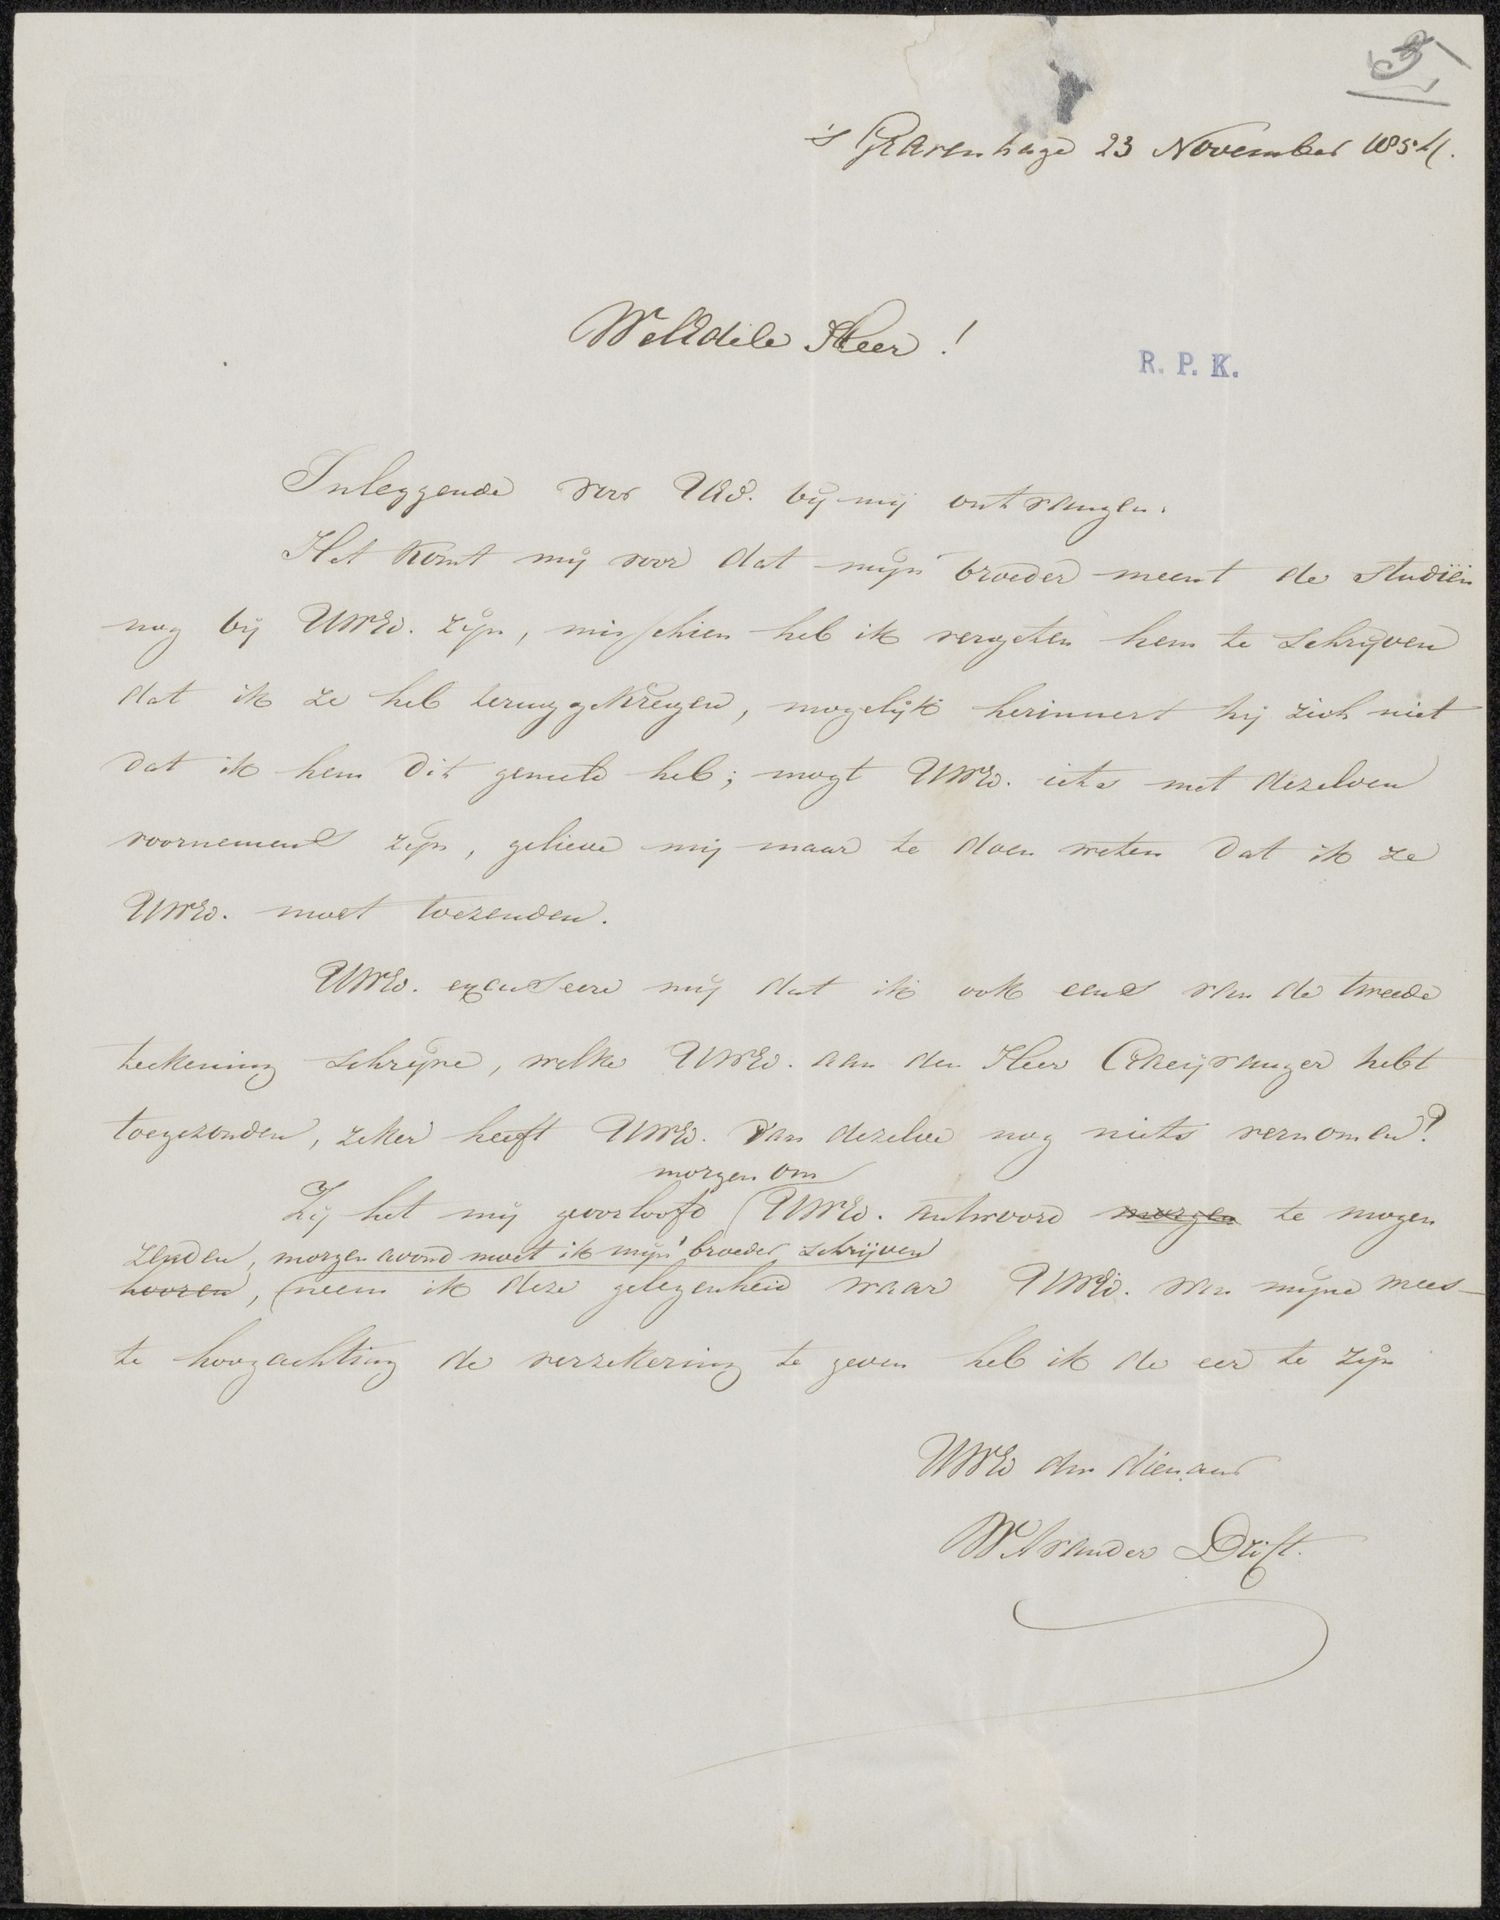 3
's Gravenhage 23 November 1854.
WelEdele Heer!
R. P. K.
Inleggende voor UEd. bij mij ontvangen.
Het komt mij voor dat mijn broeder meent de studiën
nog bij UWEd. zijn, misschien heb ik vergeten hem te schrijven
dat ik ze heb teruggekregen, mogelijk herinnert hij zich niet
dat ik hem dit gemeld heb; mogt UWEd. iets met dezelven
voornemens zijn, gelieve mij maar te doen weten dat ik ze
UWEd. moet toezenden.
UWEd. excuseere mij dat ik ook eens van de tweede
teekening schrijve, welke UWEd. aan den Heer hebt
toegezonden, zeker heeft UWEd. van dezelve nog niets vernomen?
morgen om
Zij het mij geoorloofd UWEd. antwoord morgen te mogen
zenden, morgen avond moet ik mijn broeder schrijven
hooren, neem ik deze gelegenheid waar UWEd. van mijne mees-
te hoogachting de verzekering te geven heb ik de eer te zijn
UWEd dw dienaar
W A vander Drift.